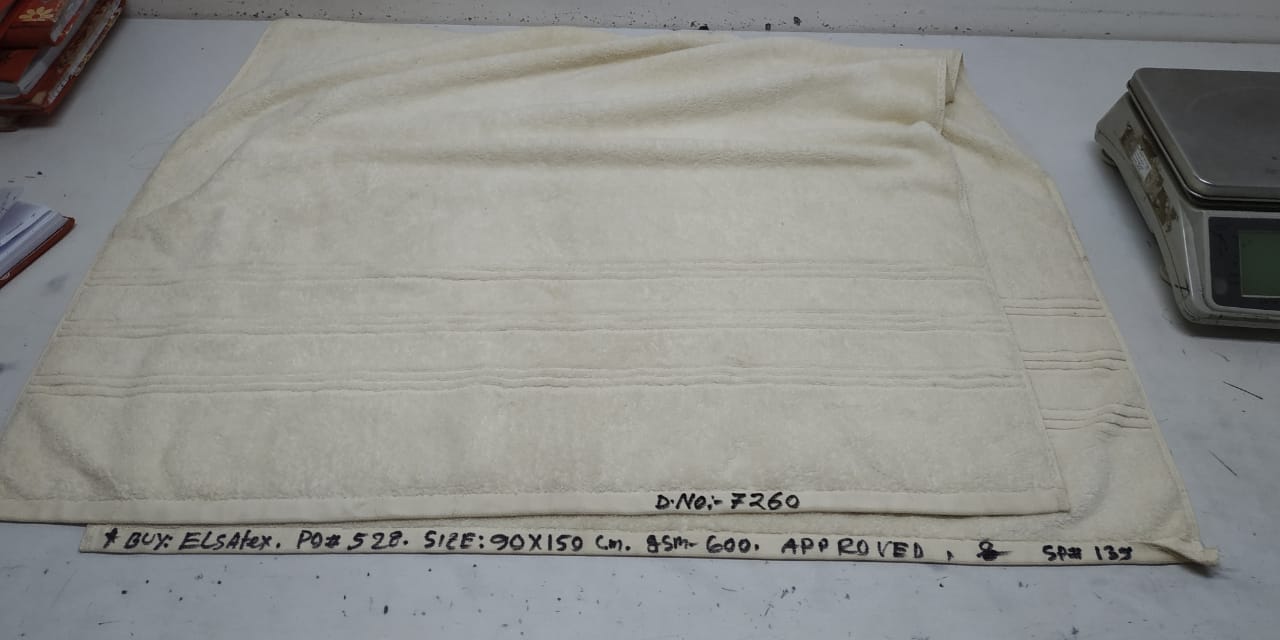 D.NO:- 7260
* BUY: ELSAtex. PO# 528. SIZE: 90X150 Cm. gsm- 600. APPROVED, SP# 139